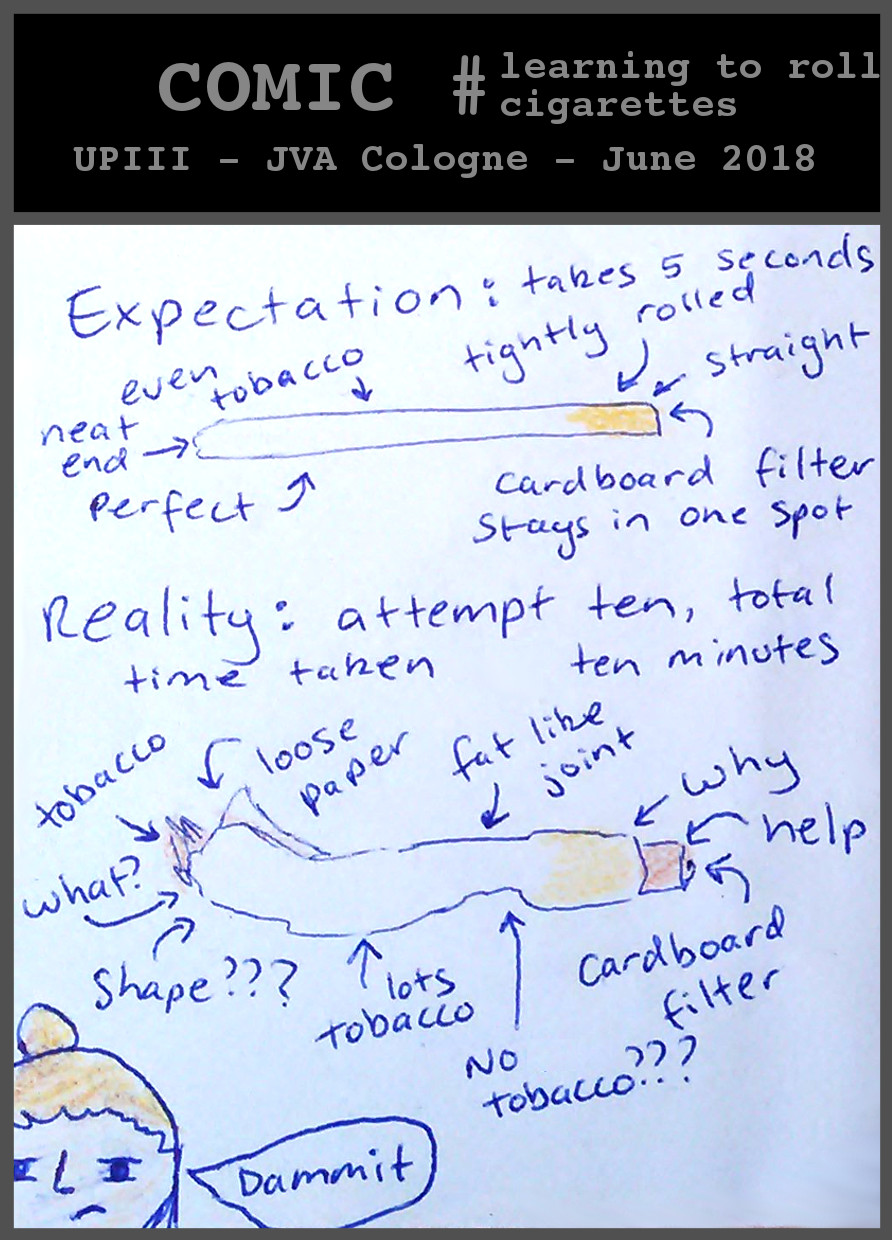 COMIC # learning to roll
cigarettes
UPIII - JVA Cologne - June 2018
Expectation: takes 5 seconds
even
tobacco
tightly rolled
straight
neat
end
Perfect
Cardboard filter
stays in one spot
Reality: attempt ten, total
time taken ten minutes
tobacco
loose
paper
fat like
joint
why
help
what?
Shape???
lots
tobacco
No
tobacco???
Cardboard
filter
Dammit